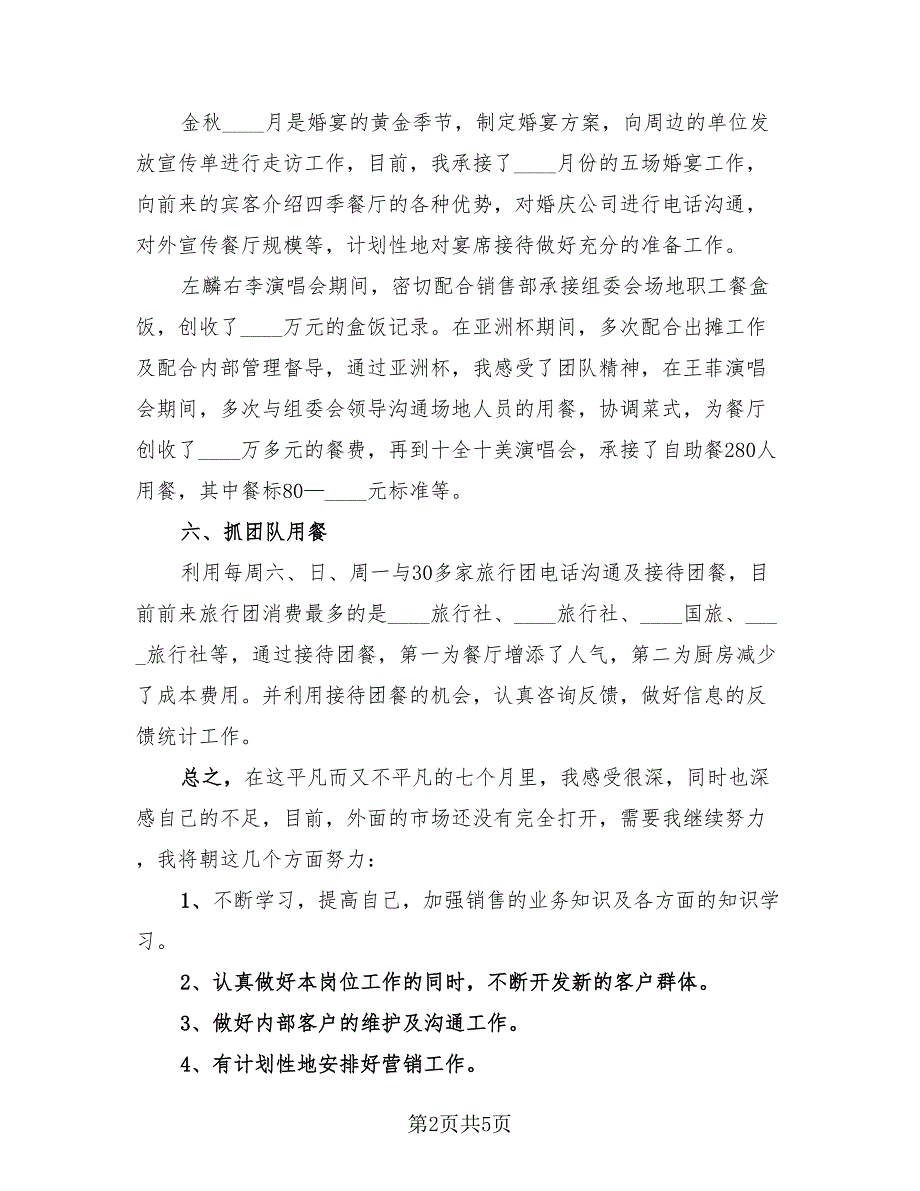 金秋____月是婚宴的黄金季节，制定婚宴方案，向周边的单位发
放宣传单进行走访工作，目前，我承接了____月份的五场婚宴工作，
向前来的宾客介绍四季餐厅的各种优势，对婚庆公司进行电话沟通，
对外宣传餐厅规模等，计划性地对宴席接待做好充分的准备工作。
左麟右李演唱会期间，密切配合销售部承接组委会场地职工餐盒
饭，创收了____万元的盒饭记录。在亚洲杯期间，多次配合出摊工作
及配合内部管理督导，通过亚洲杯，我感受了团队精神，在王菲演唱
会期间，多次与组委会领导沟通场地人员的用餐，协调菜式，为餐厅
创收了____万多元的餐费，再到十全十美演唱会，承接了自助餐280人
用餐，其中餐标80—____元标准等。
六、抓团队用餐
利用每周六、日、周一与30多家旅行团电话沟通及接待团餐，目
前前来旅行团消费最多的是____旅行社、____旅行社、____国旅、___
_旅行社等，通过接待团餐，第一为餐厅增添了人气，第二为厨房减少
了成本费用。并利用接待团餐的机会，认真咨询反馈，做好信息的反
馈统计工作。
总之，在这平凡而又不平凡的七个月里，我感受很深，同时也深
感自己的不足，目前，外面的市场还没有完全打开，需要我继续努力
，我将朝这几个方面努力：
1、不断学习，提高自己，加强销售的业务知识及各方面的知识学
习。
2、认真做好本岗位工作的同时，不断开发新的客户群体。
3、做好内部客户的维护及沟通工作。
4、有计划性地安排好营销工作。
第2页共5页